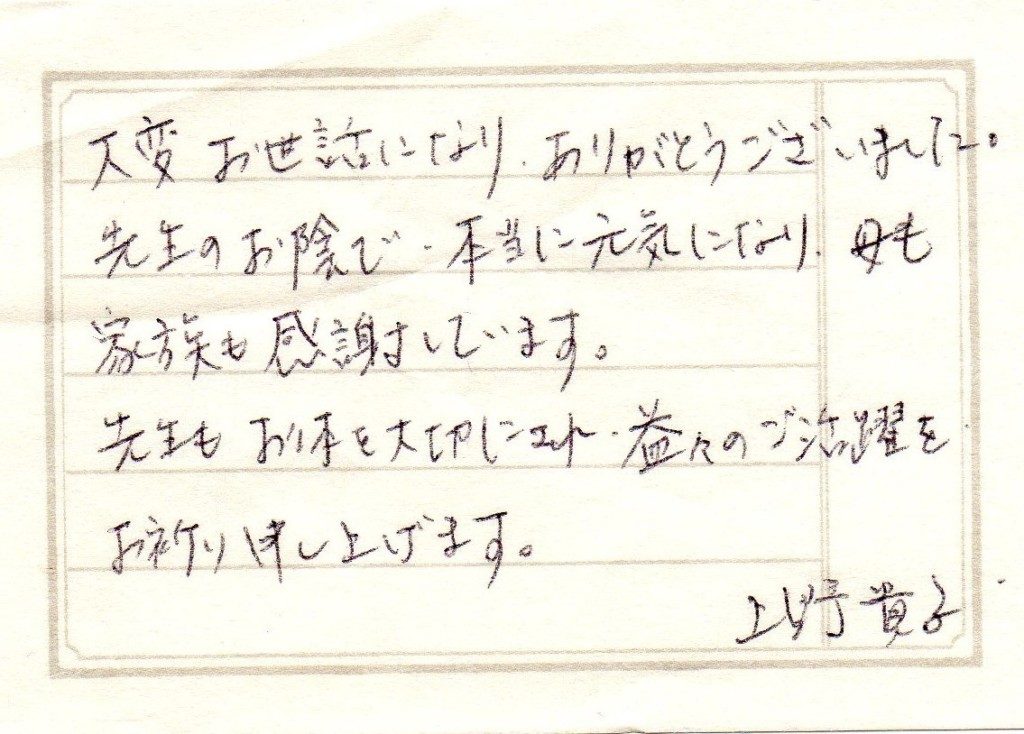 大変お世話になり、ありがとうございました。
先生のお陰で、本当に元気になり、母も
家族も感謝しています。
先生もお体を大切に 益々のご活躍を
お祈り申し上げます。
上野貴子